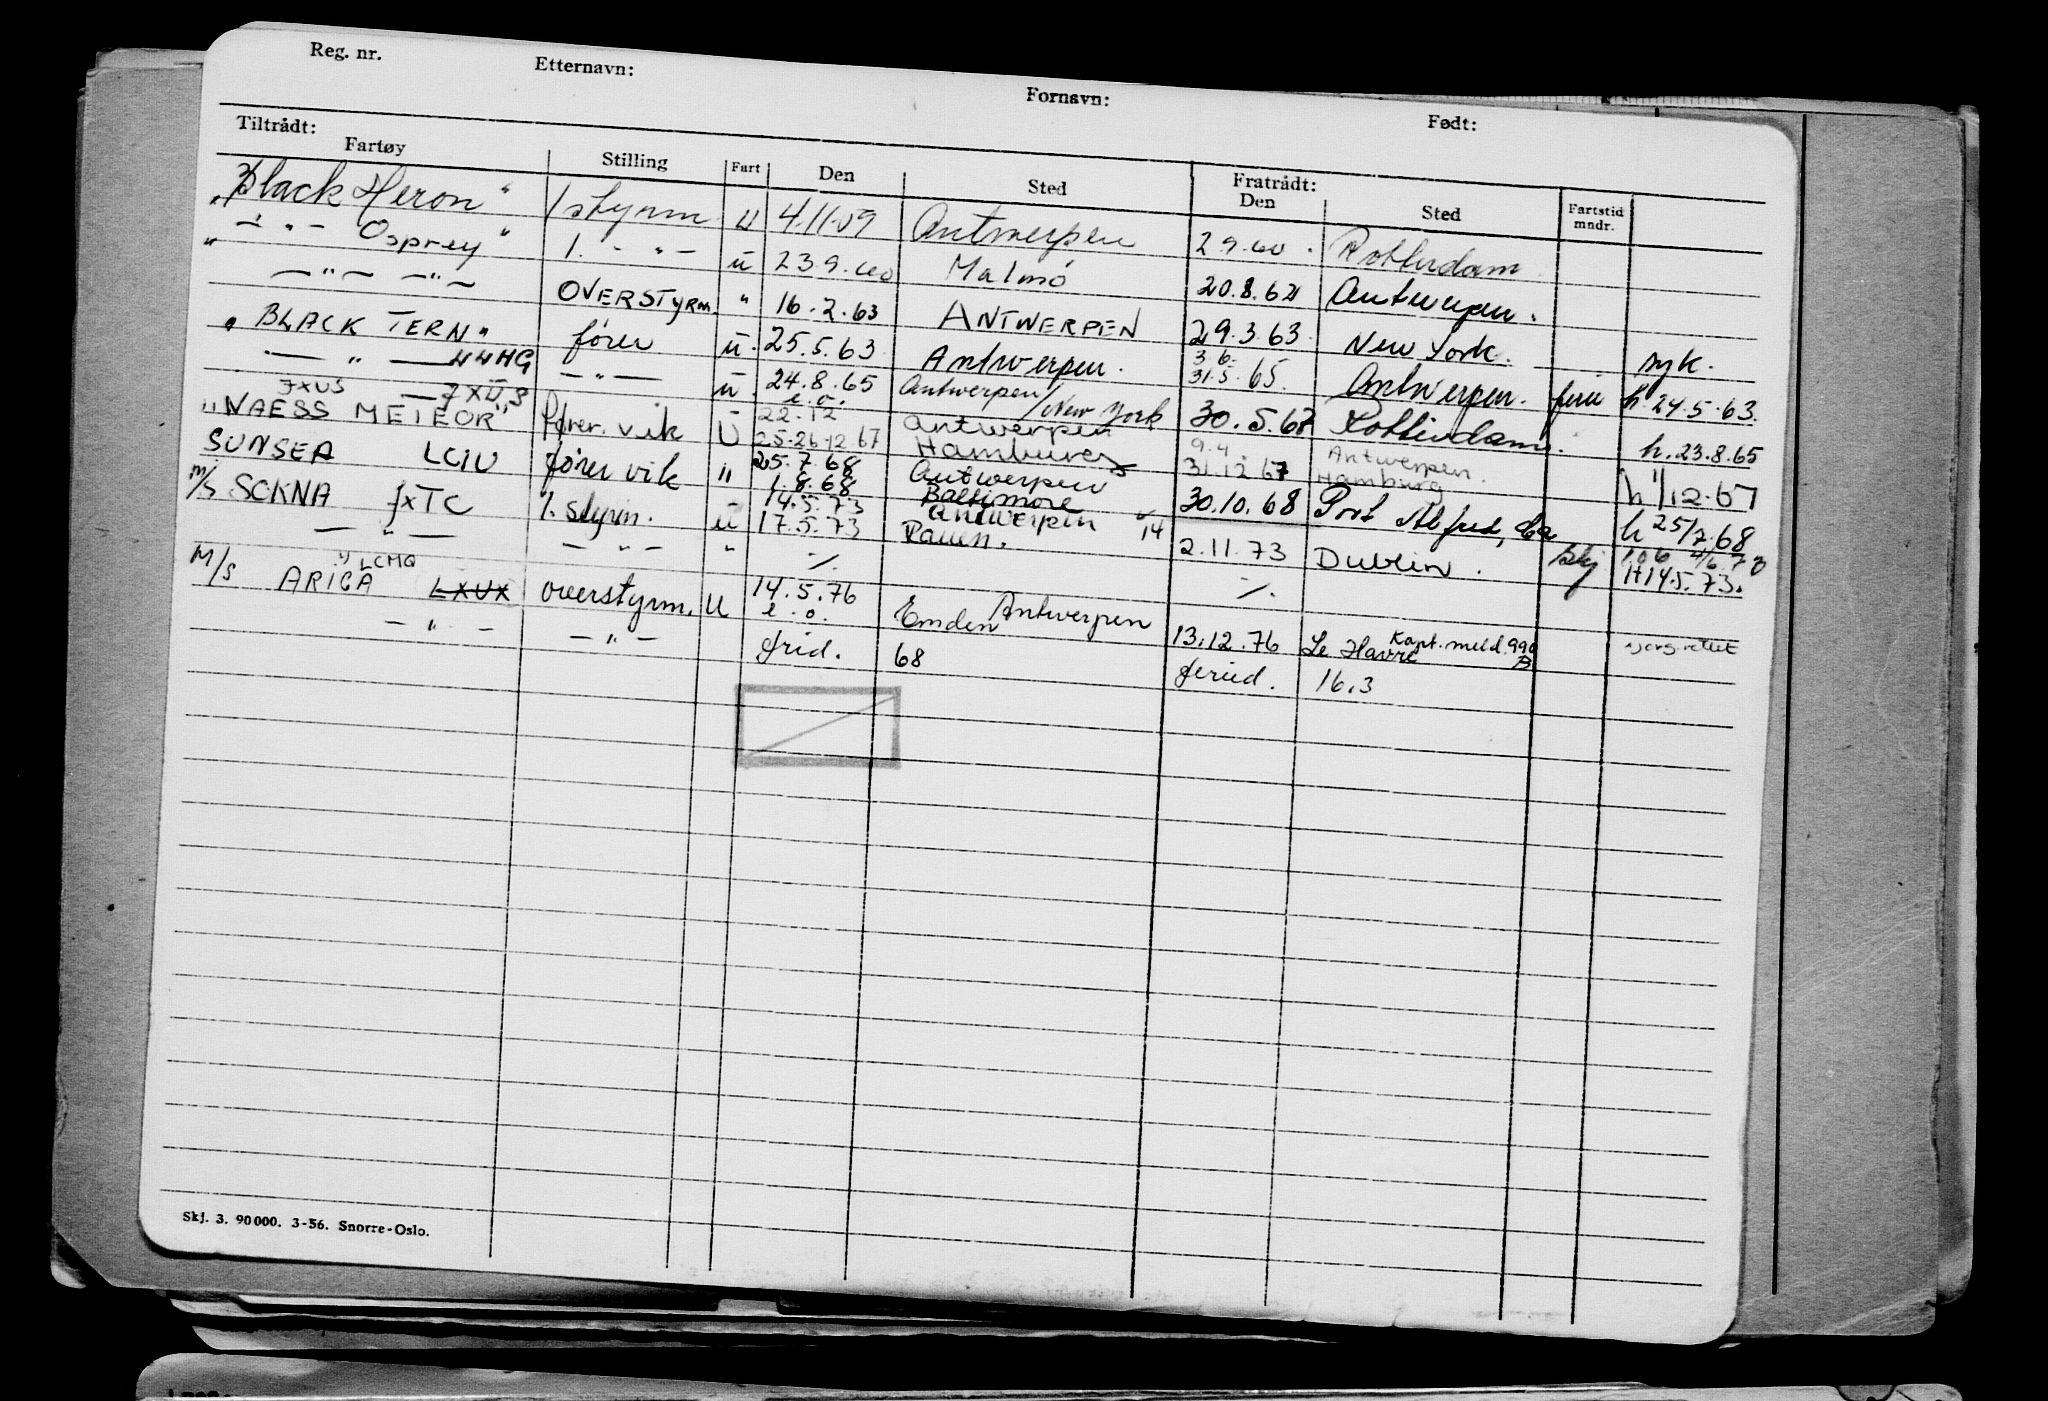 Reg. nr. Etternavn: Fornavn: Født:
Tiltrådt: Fratrådt:
Fartøy Stilling Fart Den Sted Den Sted Fartstid mndr.
"Black Heron" 1 styrm U 4.11.59 Antwerpen 2.9.60. Rotterdam
" — " — Osprey" 1. — " — ū 23.9.60 Malmö 20.8.62 Antwerpen.
— " — — " — OVERSTYRM. " 16.2.63 ANTWERPEN 29.3.63 New York. syk.
"BLACK TERN" fører ū. 25.5.63 Antwerpen. 3.6. 31.5.65. Antwerpen. ferie h. 24.5.63.
— " — — " — ū. 24.8.65 Antwerpen/New York 30.5.67 Rotterdam. h. 23.8.65
JXUS e.o.
"NAESS METEOR" JXUS fører. vik U 22.12 25-26.12.67 Antwerpen Hamburg 9.4. 31.12.67 Antwerpen. Hamburg h 1/12.67
SUNSEA LCIU fører vik " 25.7.68 1.8.68 Antwerpen Baltimore 30.10.68 Port Alfred, Ca h 25/7.68
M/S SOKNA JXTC 1. styrm. ū 14.5.73 17.5.73 Antwerpen Rauen. 14 2.11.73 Dublin. H 14.5.73.
— " — — " — " ⁒ ⁒
M/S ARICA LCMQ LXUX overstyrm. U 14.5.76 Antwerpen
— " — — " — e.o. Emden 13.12.76 Le Havre Kapt. meld. 990
frid. 68 feried. 16.3
Skj. 3. 90 000. 3-56. Snorre-Oslo.